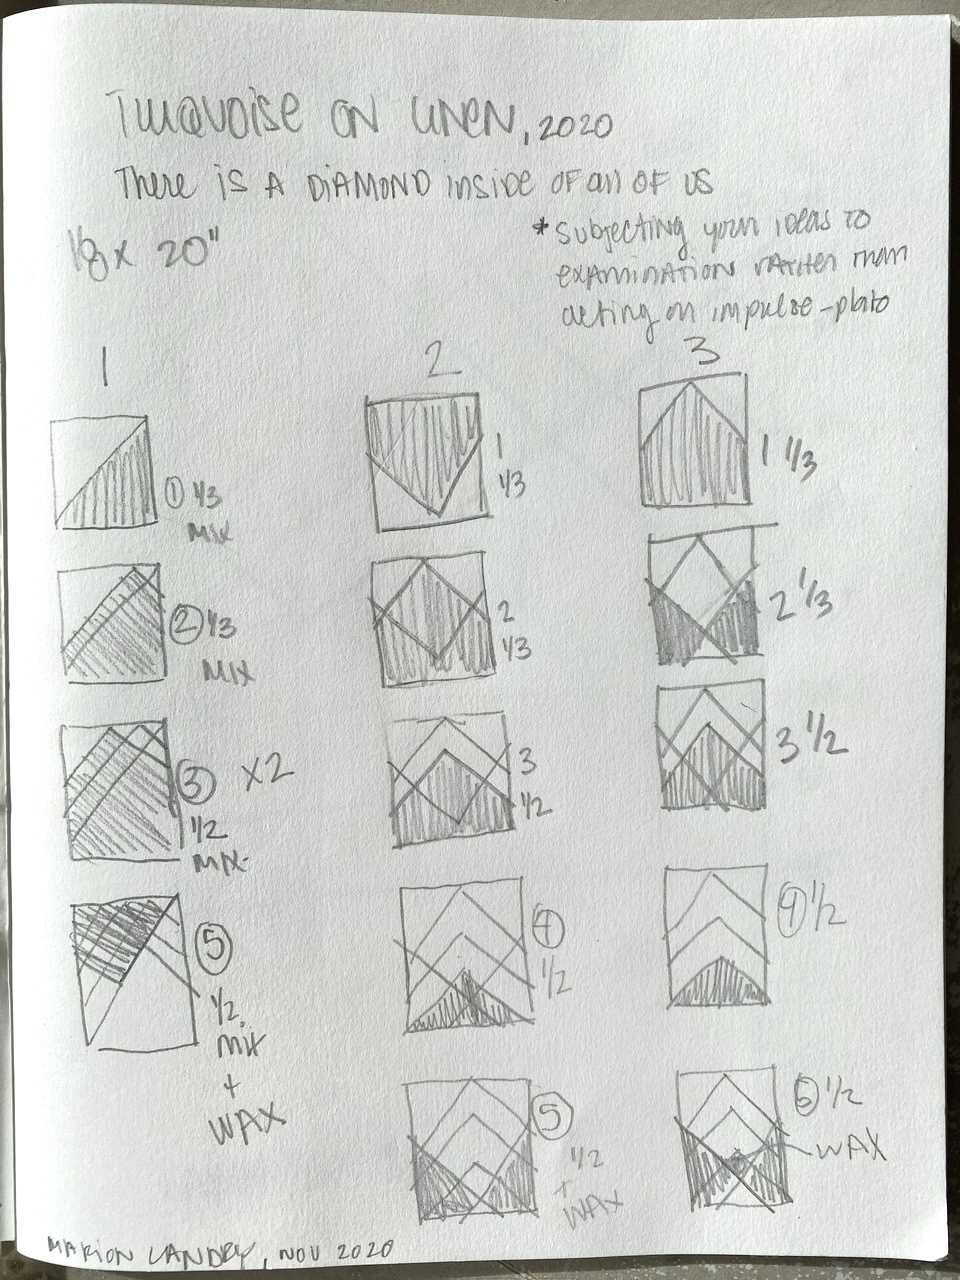 TURQUOISE ON LINEN, 2020
THERE IS A DIAMOND INSIDE OF all OF US
18 x 20"
* Subjecting your ideas to
examination rather than
acting on impulse - plato
1
2
3
① 1/3
MIX
② 1/3
MIX
③ x2
1/2
MIX
⑤
1/2
MIX
+
WAX
1
1/3
2
1/3
3
1/2
④
1/2
⑤
1/2
+
WAX
1 1/3
2 1/3
3 1/2
④ 1/2
⑤ 1/2
WAX
MARION LANDRY, NOV 2020